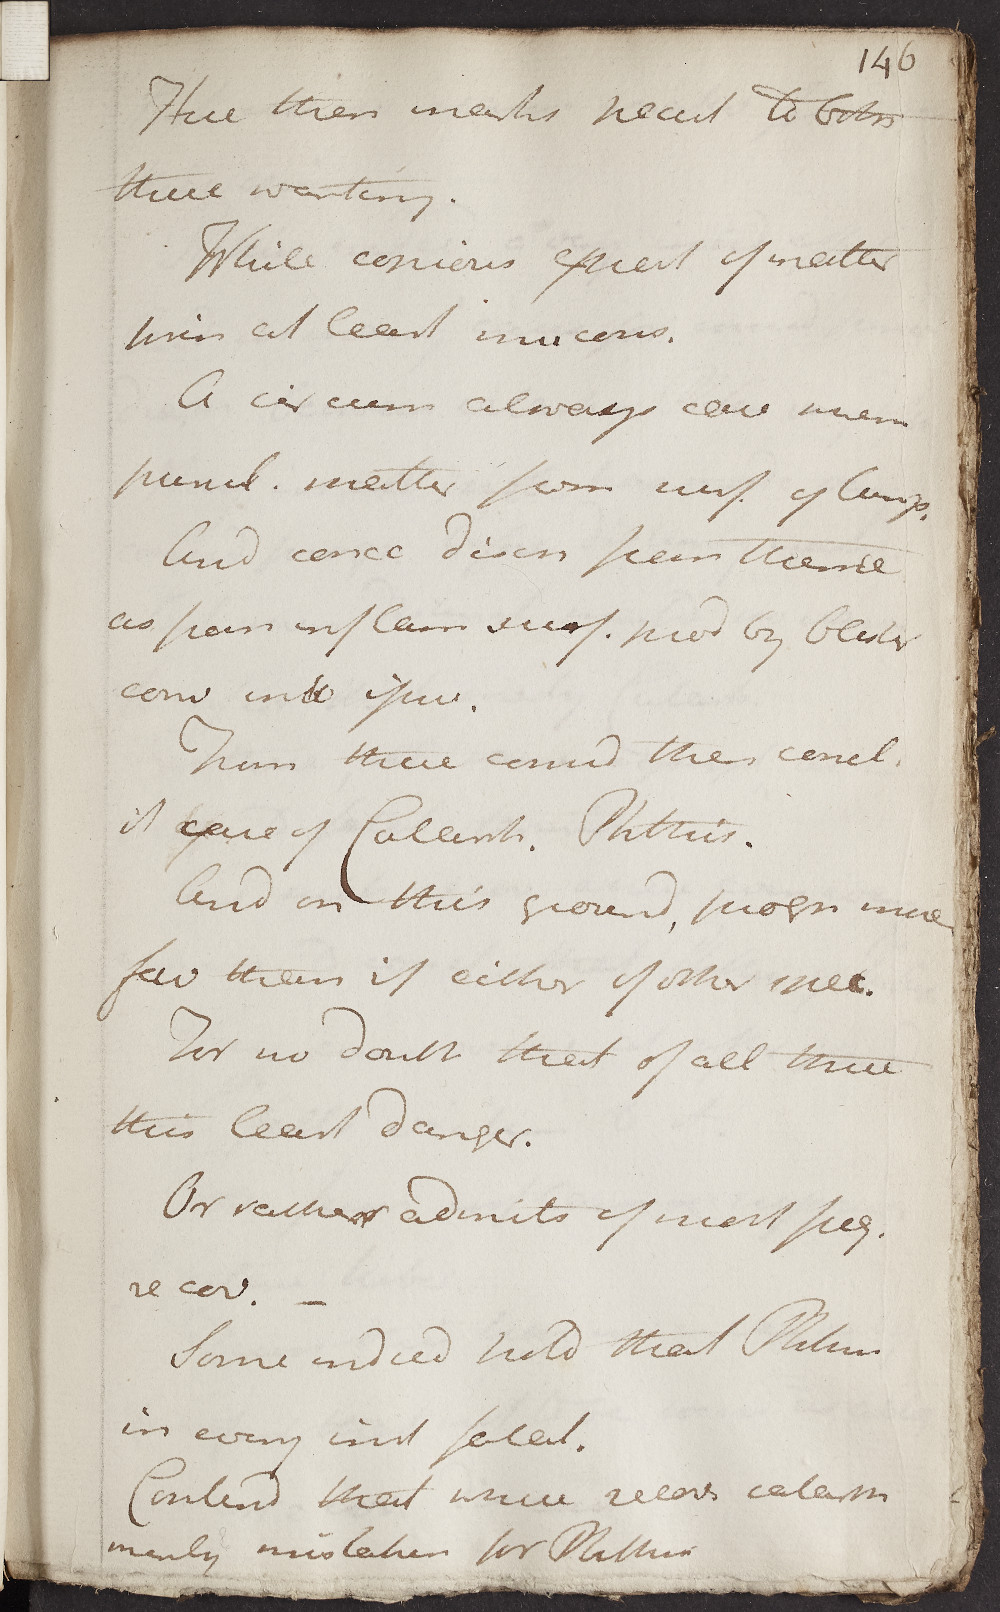 146
then marks to both
these wanting.
While copious expect of matter
prin at least mucous.
A circum always
purul. matter from surf. of lungs.
And conce discr from these
as from inflam surf. prod by blister
conv into issue.
From these consid then concl.
it case of Catarrh. Phthisis.
And on this ground, progn more
fav than if either of other spec.
For no doubt that of all these
this least danger.
Or rather admits of most freq.
recov. –
Some indeed hold that Phthisis
in every inst fatal.
Contend that where recov catarrh
merely mistaken for Phthisis